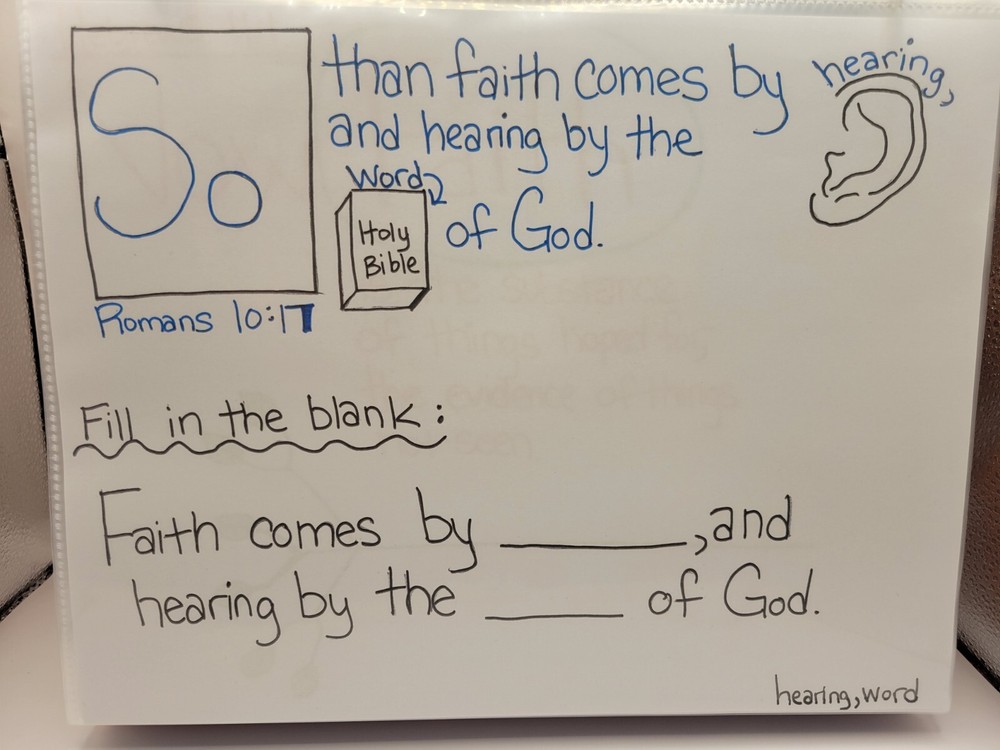 So than faith comes by hearing,
and hearing by the
word
Holy
Bible
of God.
Romans 10:17
Fill in the blank:
Faith comes by ________, and
hearing by the ______ of God.
hearing, word